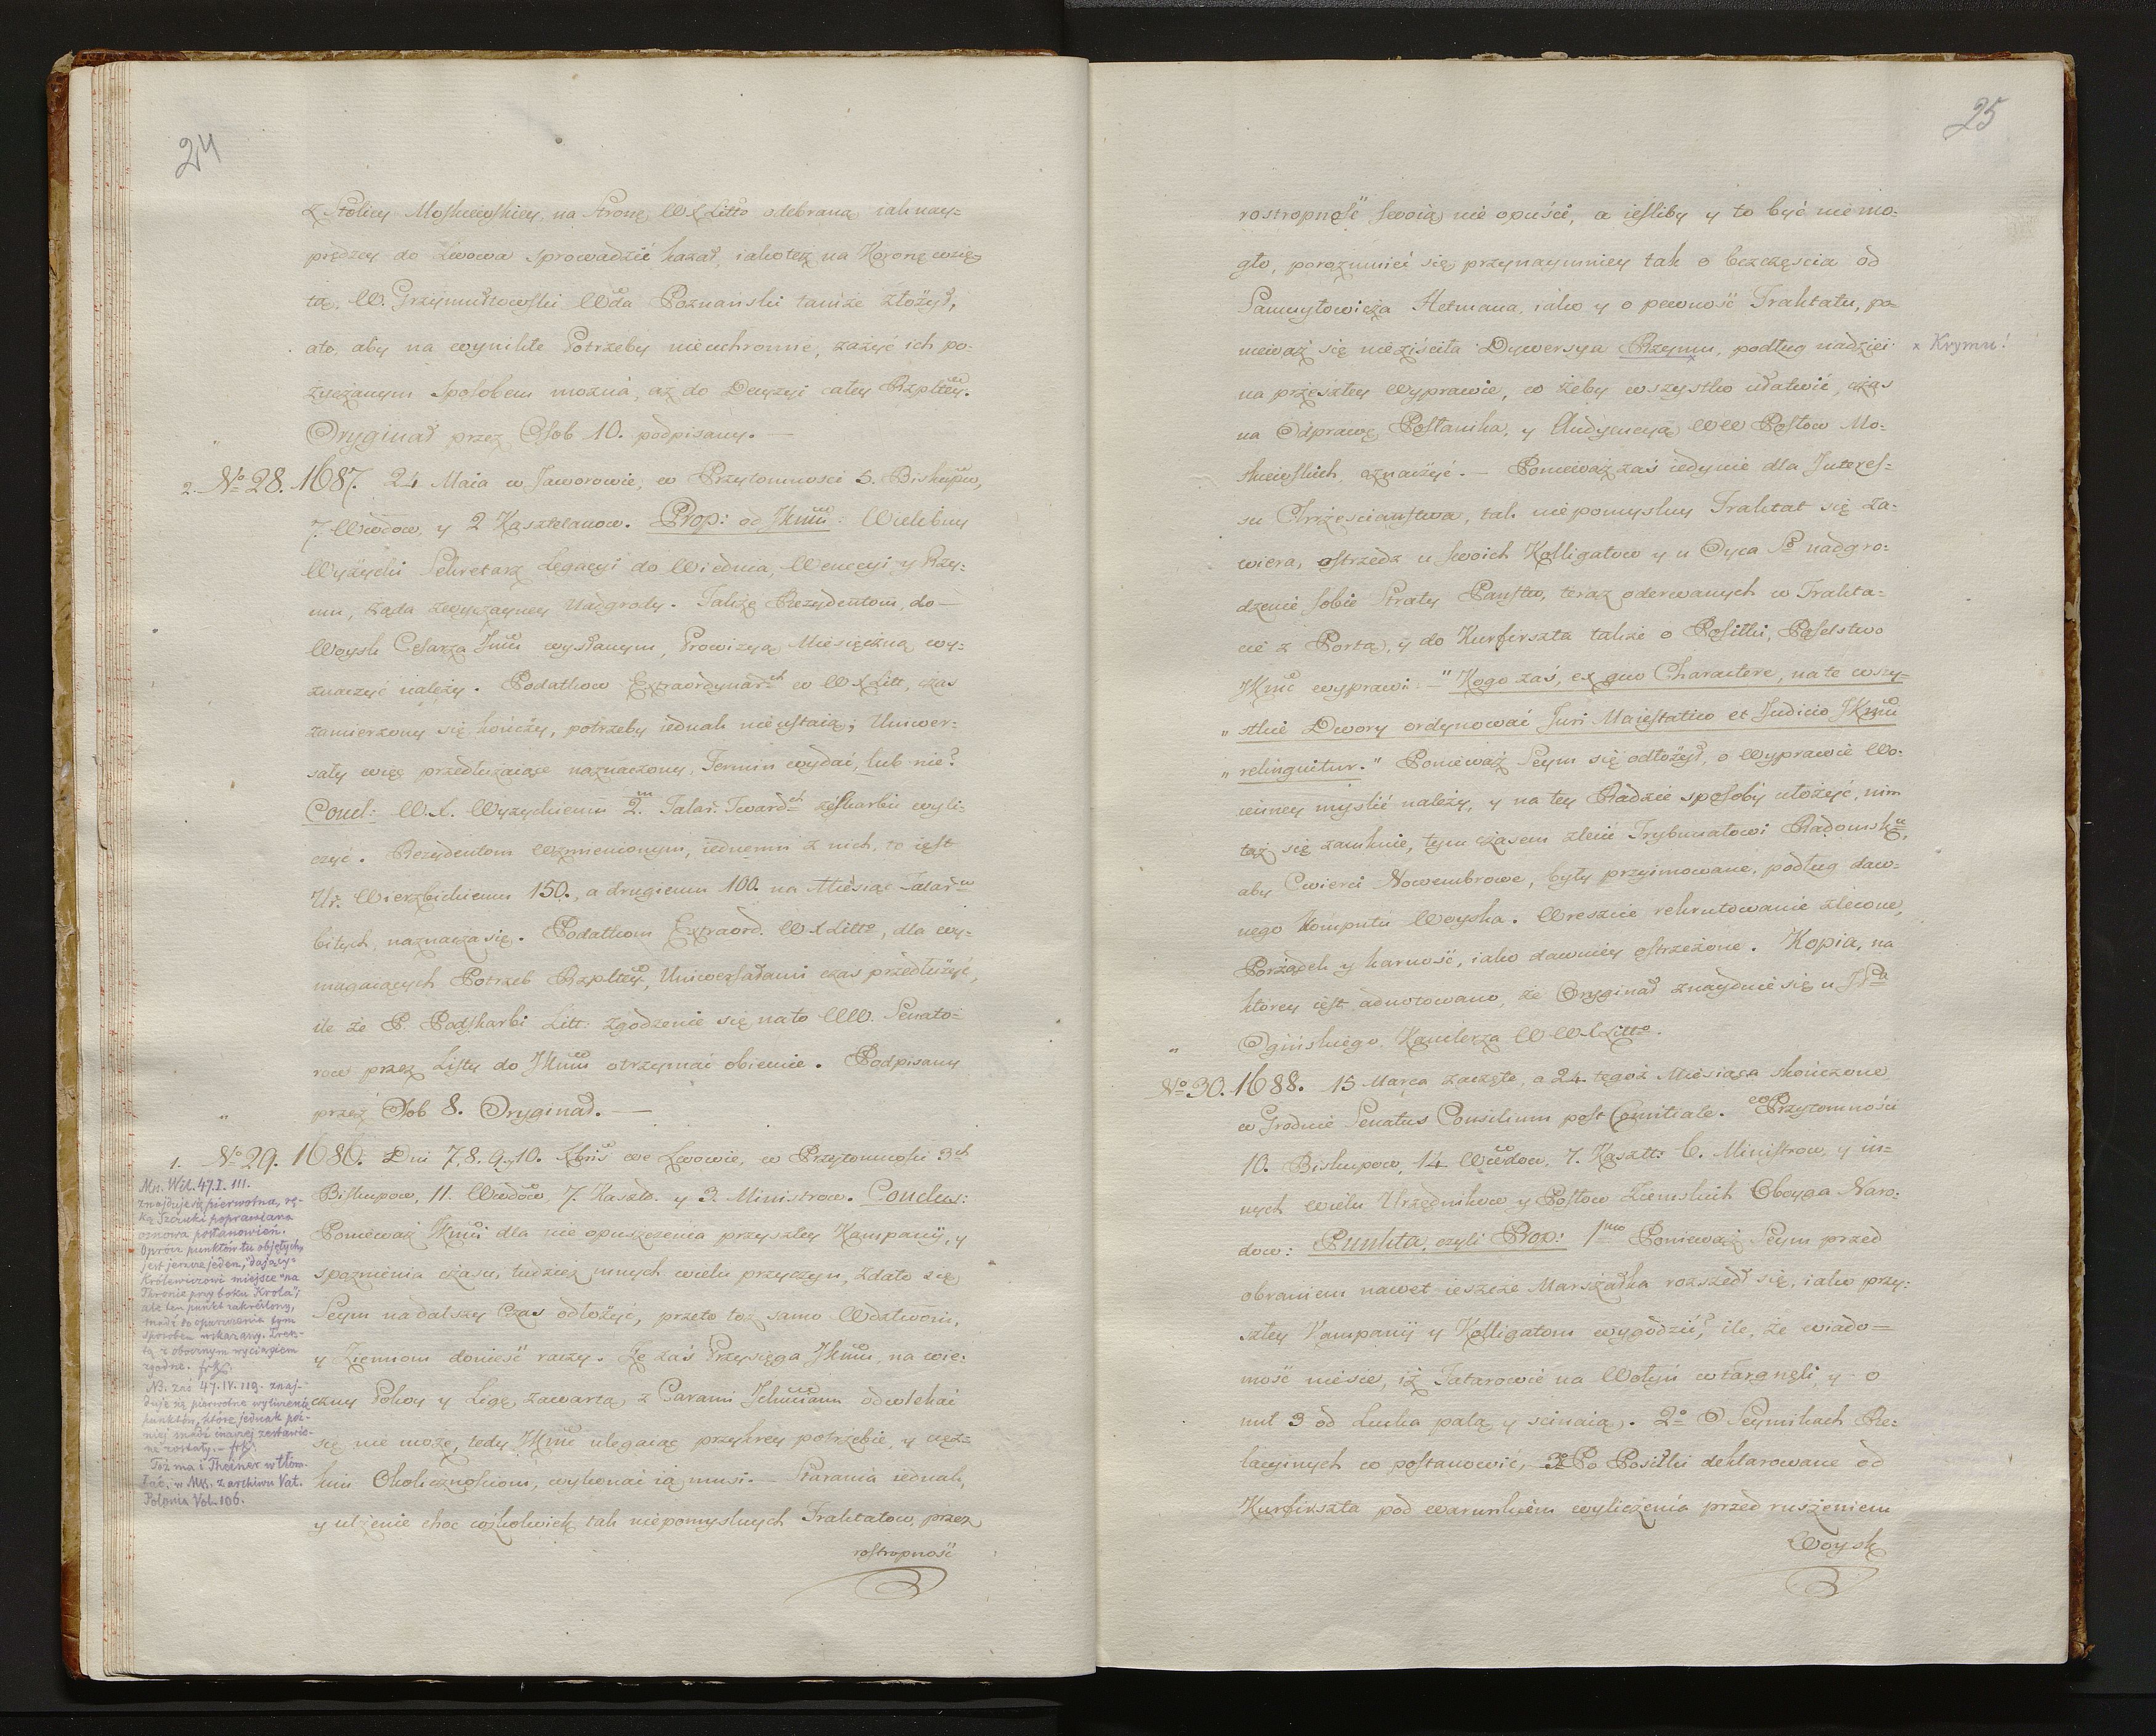 24
z Stolicy Moskiewskiey, na Stronę WXLitto odebraną iak nay-
prędzey do Lwowa sprowadzić kazał, iakoteż na Koronę wzię-
tą, W. Grzymułtowski Wda Poznański tamże złożył,
ato, aby na wynikłe Potrzeby nieuchronne, zażyć ich po-
życzanym sposobem można, aż do Decyzyi całey Rzpltey.
Oryginał przez Osob 10. podpisany. —
2. No 28. 1687. 24 Maia w Jaworowie, w Przytomnosci 5. Biskupow,
7. Wwdow, y 2 Kasztelanow. Prop: od JKmci: Wielebny
Wyżycki Sekretarz Legacyi do Wiednia, Wenecyi y Rzy-
mu, żąda zwyczayney Nadgrody. Takze Rezydentom, do-
Woysk Cesarza Jmci wysłanym, Prowizyą Miesięczną wy-
znaczyć należy. Podatkow Extraordynar.ch w WXLitt, czas
zamierzony się kończy, potrzeby iednak nieustaią; Uniwer-
sały więc przedłużaiące naznaczony Termin wydać, lub nie?
Concl: W.X. Wyzyckiemu 2.m Talar. Tward.ch ze Skarbu wyli-
czyć. Rezydentom wzmienionym, iednemu z nich, to iest
Ur. Wierzbickiemu 150., a drugiemu 100. na Miesiąc Talarow
bitych, naznacza się. Podatkom Extraord. WXLitto, dla wy-
magaiących Potrzeb Rzpltey, Uniwersałami czas przedłużyć,
ile że P. Podskarbi Litt: zgodzenie się na to WW. Senato-
row przez Listy do JKmci otrzymać obiecuie. Podpisany
przez Osob 8. Oryginał. —
1. No 29. 1686. Dni 7, 8. 9. y 10. Xbris we Lwowie, w Przytomnosci 3ch
Biskupow, 11. Wwdow, 7. Kasztl. y 3 Ministrow. Conclus:
Ponieważ JKmci dla nie opuszczenia przyszłey Kampanii, y
spoznienia czasu, tudzież innych wielu przyczyn, zdało się
Seym na dalszy Czas odłożyć, przeto toż samo Wdztwom,
y Ziemiom donieść raczy. Że zaś Przysięga JKmci, na wie-
czny Pokoy y Ligę zawartą z Carami Ichmciami odwlekać
się nie może, tedy JKmć ulegaiąc przykrey potrzebie, y cięż-
kim Okolicznościom, wykonać ią musi. — Starania iednak,
y ulżenie choć czżkolwiek tak niepomyslnych Traktatow, przez
rostropność
Ms. Wil. 47. I. 111.
znajduje się pierwotna, rę-
ką Szczuki poprawiana
osnowa postanowień.
Oprócz punktów tu objętych,
jest jeszcze jeden, "dający"
Królewiczowi miejsce "na
Thronie przy boku Króla",
ale ten punkt zakreślony,
sposobem wskazany. Zresz-
tą z obecnym wyciągiem
zgodne.
NB. zaś 47. IV. 119. znaj-
duje się pierwotne wyłuszczenie
punktów, które jednak póź-
niej snadź inaczej zestawio-
ne zostały.
Toż ma i Theiner w tłóm.
łać. w Ms. z archiwu Vat.
Polonia Vol. 106.
25
rostropność swoią nie opuści, a ieśliby y to być nie mo-
gło, porozumieć się przynaymniey tak o bezczęscia od
Samuyłowicza Hetmana, iako y o pewność Traktatu, po-
nieważ się nieziściła Dywersya Rzymu, podług nadziei
x Krymu!
na przeszłey Wyprawie, w żeby wszystko ułatwić, czas
na Odprawę Posłanika, y Audyencyą WW Posłow Mo-
skiewskich, oznaczyć. — Ponieważ zaś iedynie dla Interes-
su Chrześciaństwa, tak niepomyslny Traktat się za-
wiera, ostrzedz u swoich Kolligatow y u Oyca So nadgro-
dzenie sobie Straty Państw, teraz oderwanych w Trakta-
cie z Portą, y do Kurfirszta także o Posiłki, Poselstwo
JKmć wyprawi. — "Kogo zaś, ex quo Charactere, na te wszy-
" stkie Dwory ordynować Juri Maiestatico et Judicio JKmci
" relinquitur." Ponieważ Seym się odłożył, o Wyprawie Wo-
ienney myslić należy, y na tey Radzie sposoby ułożyć, nim
taż się zamknie, tym czasem zlecić Trybunałowi Radomsku,
aby Cwierci Nowembrowe, były przyimowane, podług daw-
nego Komputu Woyska. Wreszcie rekrutowanie zlecone,
Porządek y karność, iako dawniey ostrzeżone. Kopia, na
ktorey iest adnotowano, że Oryginał znayduie się u JPa
Ogińskiego, Kanclerza WWXLitto.
No 30. 1688. 15 Marca zaczęte, a 24 tegoż Miesiąca skończone
w Grodnie Senatus Consilium post Comitiale. w Przytomności
10. Biskupow, 14 Wwdow, 7. Kasztt: 6. Ministrow, y in-
nych wielu Urzędnikow y Posłow Ziemskich Oboyga Naro-
dow: Punkta, czyli Prop: 1mo Ponieważ Seym przed
obraniem nawet ieszcze Marszałka rozszedł się, iako przy-
szłey Kampanii y Kolligatom wygodzić? ile, że wiado-
mość niesie, iż Tatarowie na Wołyń wtargnęli, y o
mil 3 od Łucka palą y scinaią. 2o O Seymikach Re-
lacyinych co postanowić, 3o Po Posiłki deklarowane od
Kurfirszta pod warunkiem wyliczenia przed ruszeniem
Woysk